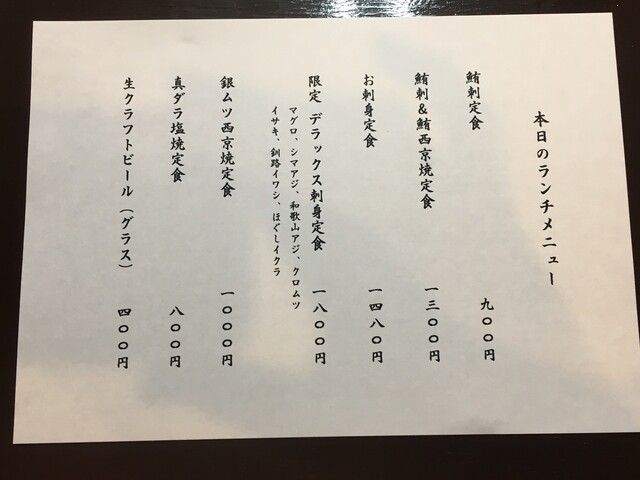 本日のランチメニュー
鮪刺定食 九〇〇円
鮪刺&鮪西京焼定食 一三〇〇円
お刺身定食 一四八〇円
限定 デラックス刺身定食 一八〇〇円
マグロ、シマアジ、和歌山アジ、クロムツ
イサキ、釧路イワシ、ほぐしイクラ
銀ムツ西京焼定食 一〇〇〇円
真ダラ塩焼定食 八〇〇円
生クラフトビール(グラス) 四〇〇円